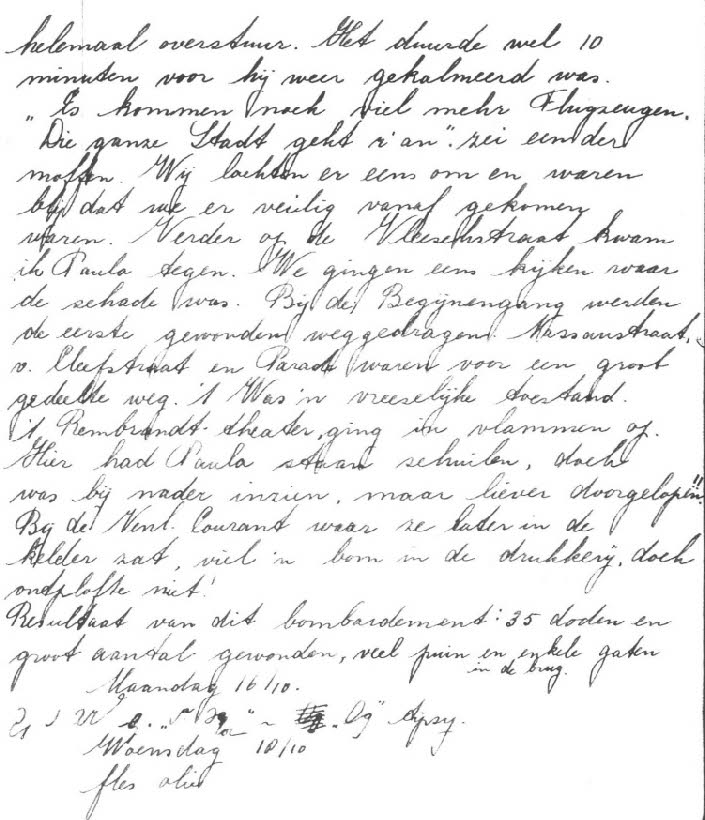 helemaal overstuur. Het duurde wel 10
minuten voor hij weer gekalmeerd was.
"Es kommen noch viel mehr Flugzeugen.
Die ganze Stadt geht r'an". zei een der
moffen. Wij lachten er eens om en waren
blij dat we er veilig vanaf gekomen
waren. Verder op de Vleeschstraat kwam
ik Paula tegen. We gingen eens kijken waar
de schade was. Bij de Begijnengang werden
de eerste gewonden weggedragen. Nassaustraat,
v. Cleefstraat en Parade waren voor een groot
gedeelte weg. 't Was 'n vreeselijke toestand.
't Rembrandt-theater, ging in vlammen op.
Hier had Paula staan schuilen, doch
was bij nader inzien, maar liever doorgelopen!!
Bij de Venl. Courant waar ze later in de
kelder zat, viel 'n bom in de drukkerij, doch
ontplofte niet!
Resultaat van dit bombardement: 35 doden en
groot aantal gewonden, veel puin en enkele gaten
in de brug.
Maandag 16/10.
Woensdag 18/10
fles olie